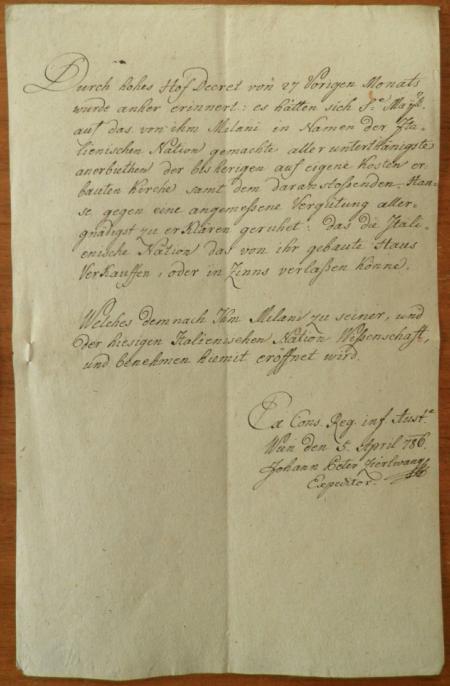 Durch hohes Hof Decret von 27 Vorigen Monats
wurde anher erinnert: es hätten sich Sr. Mayst.
auf das von ihm Milani in Namen der Ita-
lienischen Nation gemachte aller unterthänigste
anerbuthen der bisherigen auf eigene Kosten er
bauten Kirche samt dem daranstossenden Hau-
se gegen eine angemeßene Vergütung aller-
gnädigst zu erklären geruhet: das die Itali-
enische Nation das von ihr gebaute Haus
Verkauffen, oder in Zinns verlaßen könne.
Welches demnach Ihm Milani zu seiner, und
der hiesigen Italienischen Nation Wissenschaft,
und benehmen hiemit eröffnet wird.
Ex Cons. Reg. inf. Aust.
Wien den 5. April 786.
Johann Peter
Expeditor.